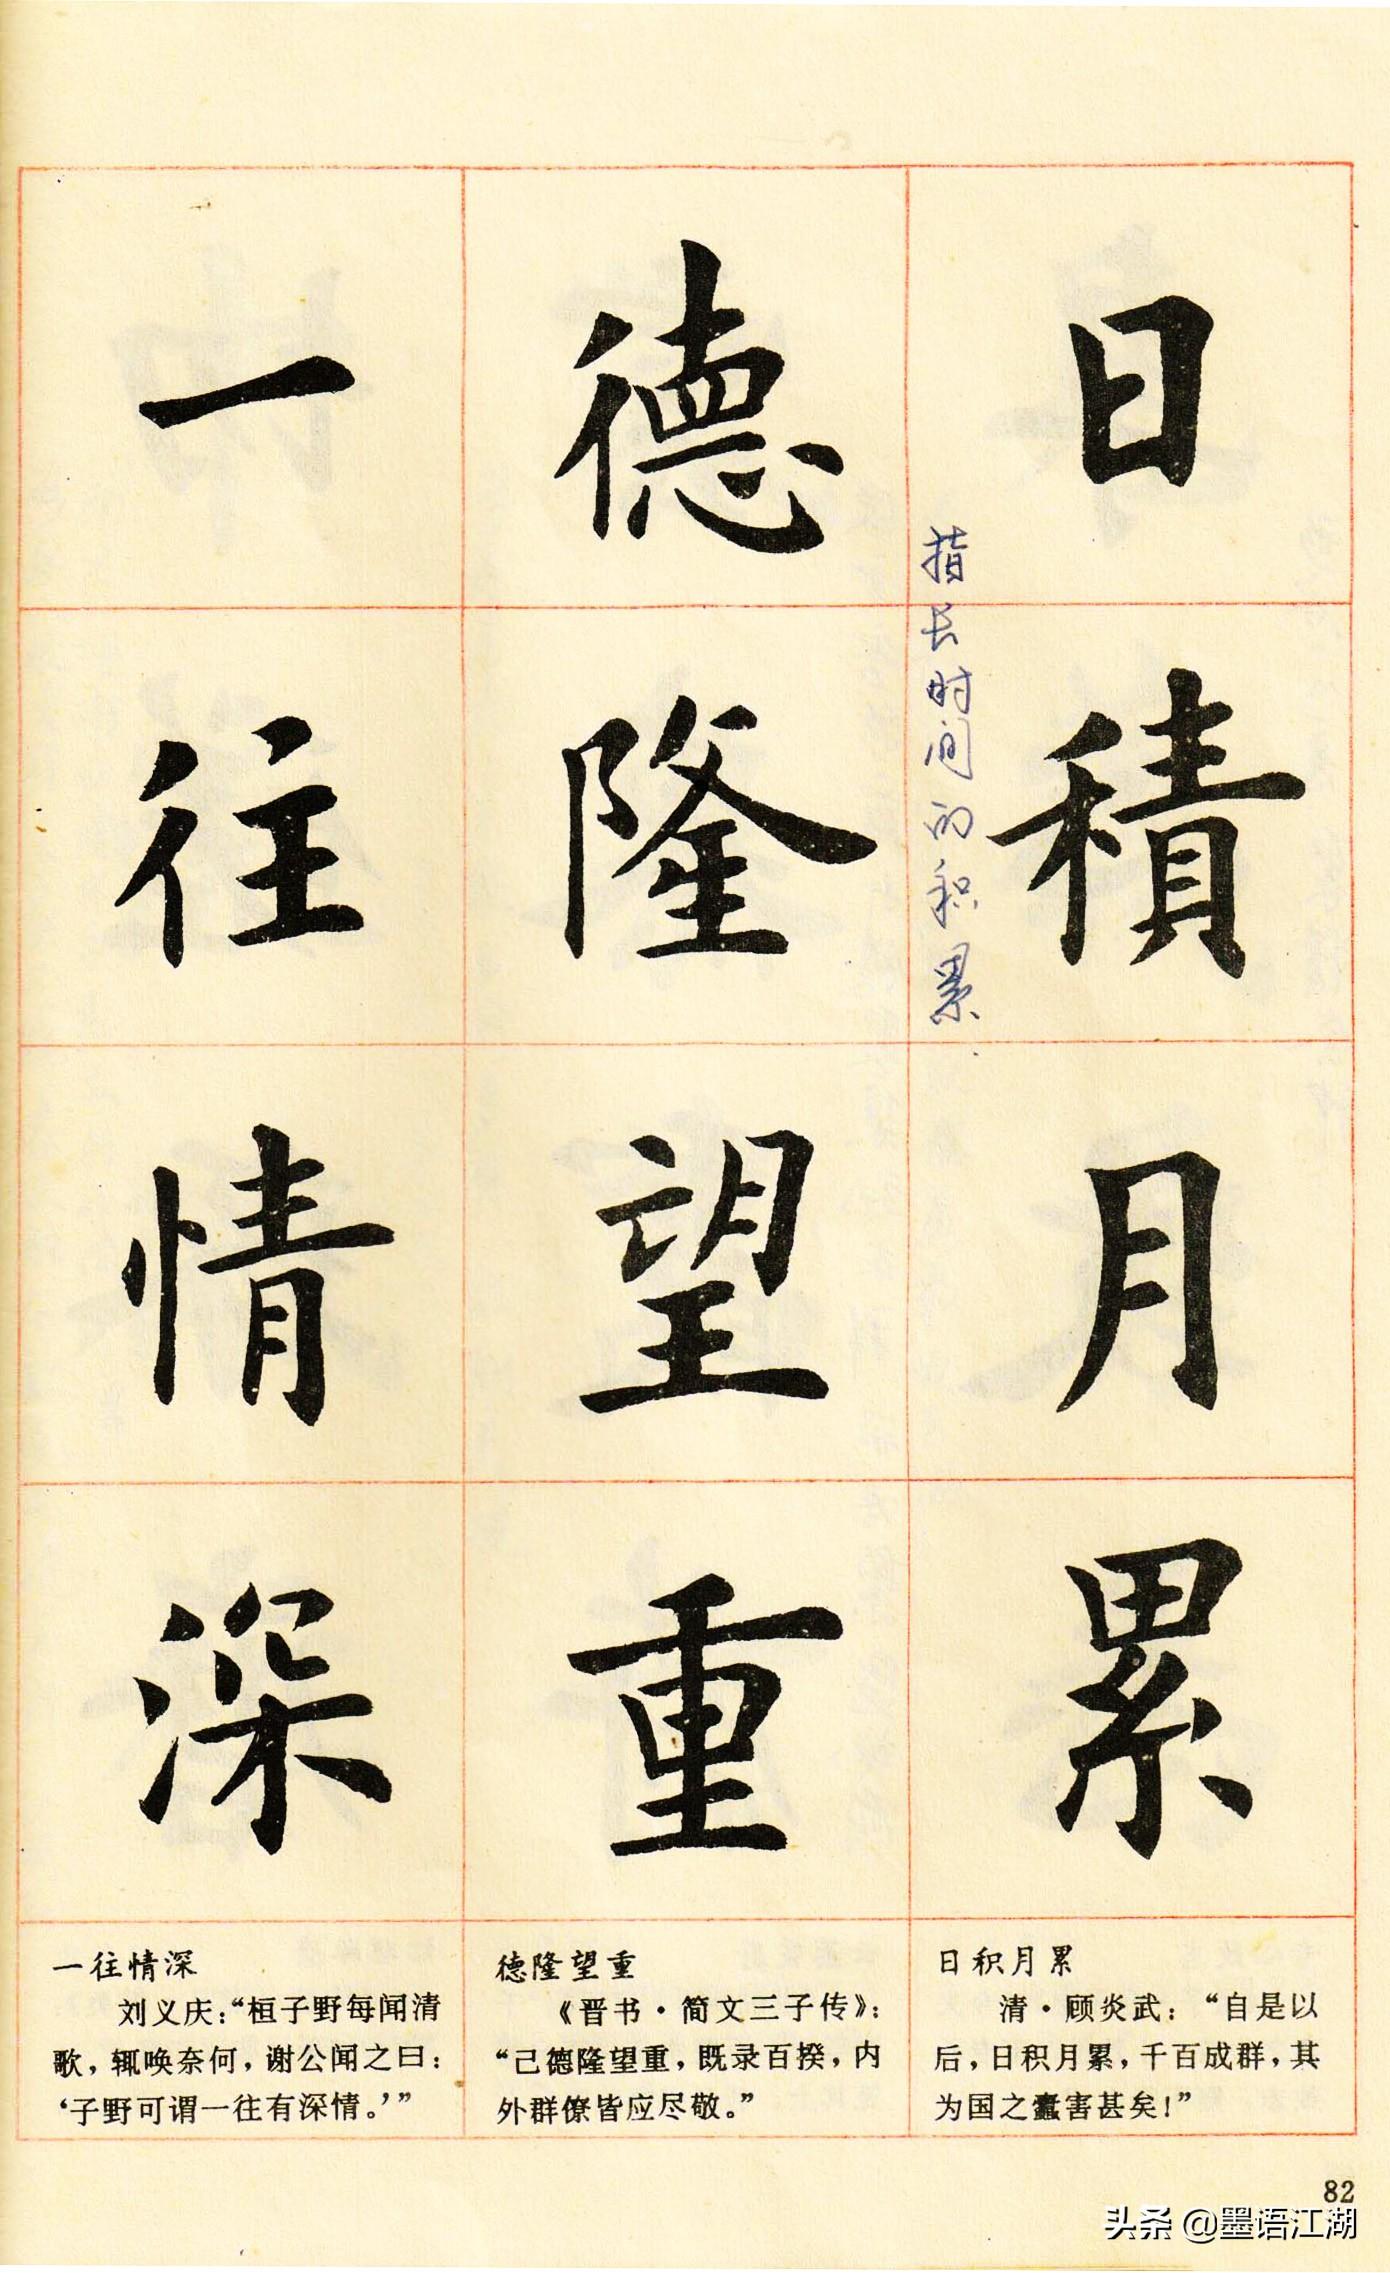 日積月累
指长时间的积累
德隆望重
一往情深
日积月累
清·顾炎武：“自是以
后，日积月累，千百成群，其
为国之蠹害甚矣！”
德隆望重
《晋书·简文三子传》：
“己德隆望重，既录百揆，内
外群僚皆应尽敬。”
一往情深
刘义庆：“桓子野每闻清
歌，辄唤奈何，谢公闻之曰：
‘子野可谓一往有深情。’”
82
头条 @墨语江湖